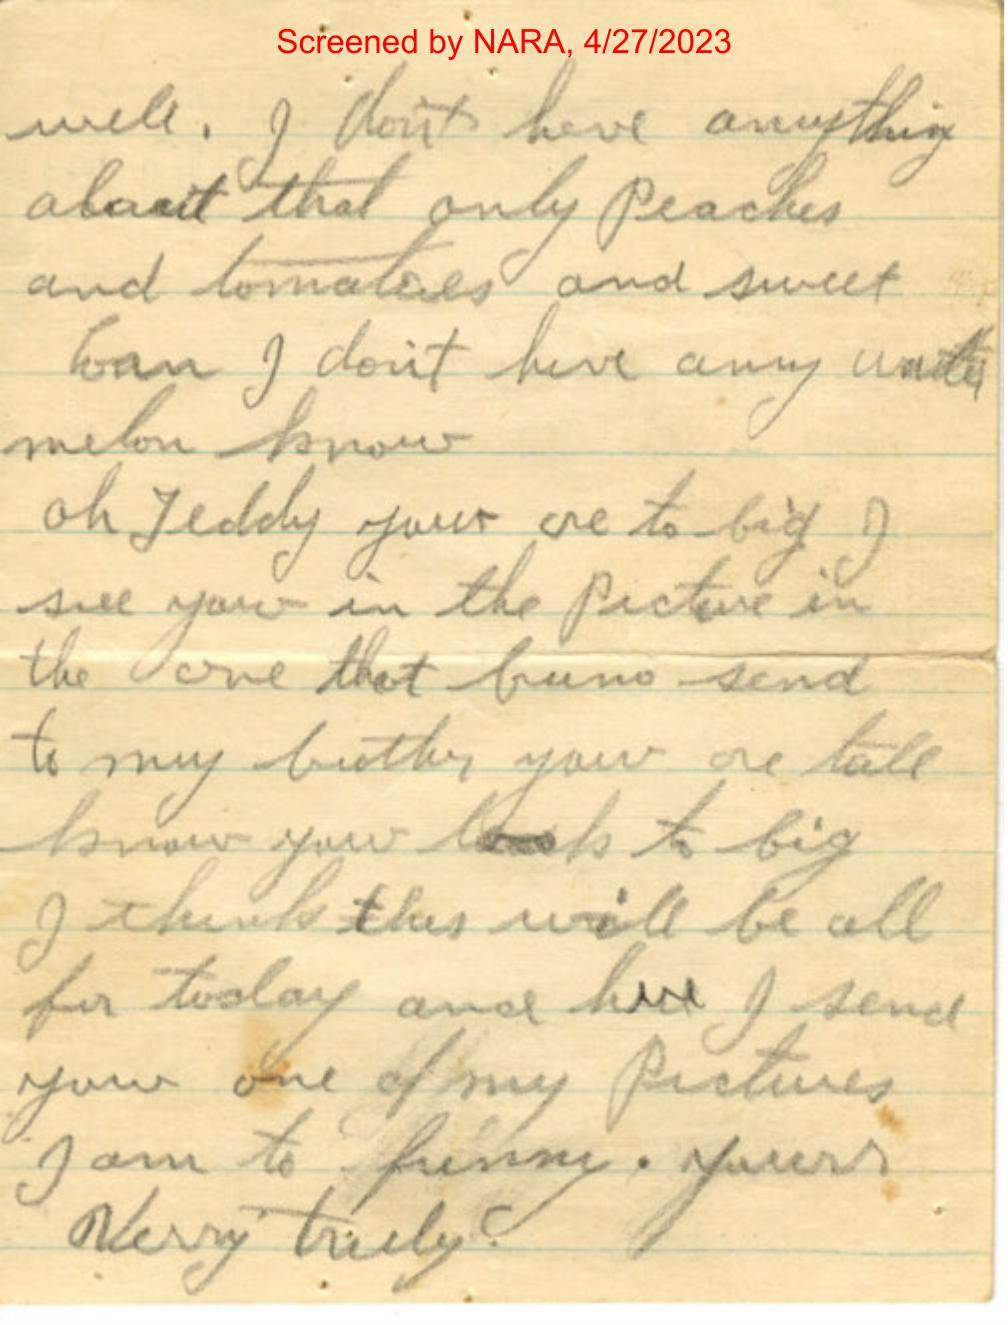 Screened by NARA, 4/27/2023
well. I don't have anything
about that only Peaches
and tomatoes and sweet
I don't have anny water
melon know
oh Teddy your are to big I
see your in the Picture in
the one that bruno send
to my brother your are tall
know your look to big
I think this will be all
for today and here I send
your one of my Pictures
I am to funny. yours
Verry truely.